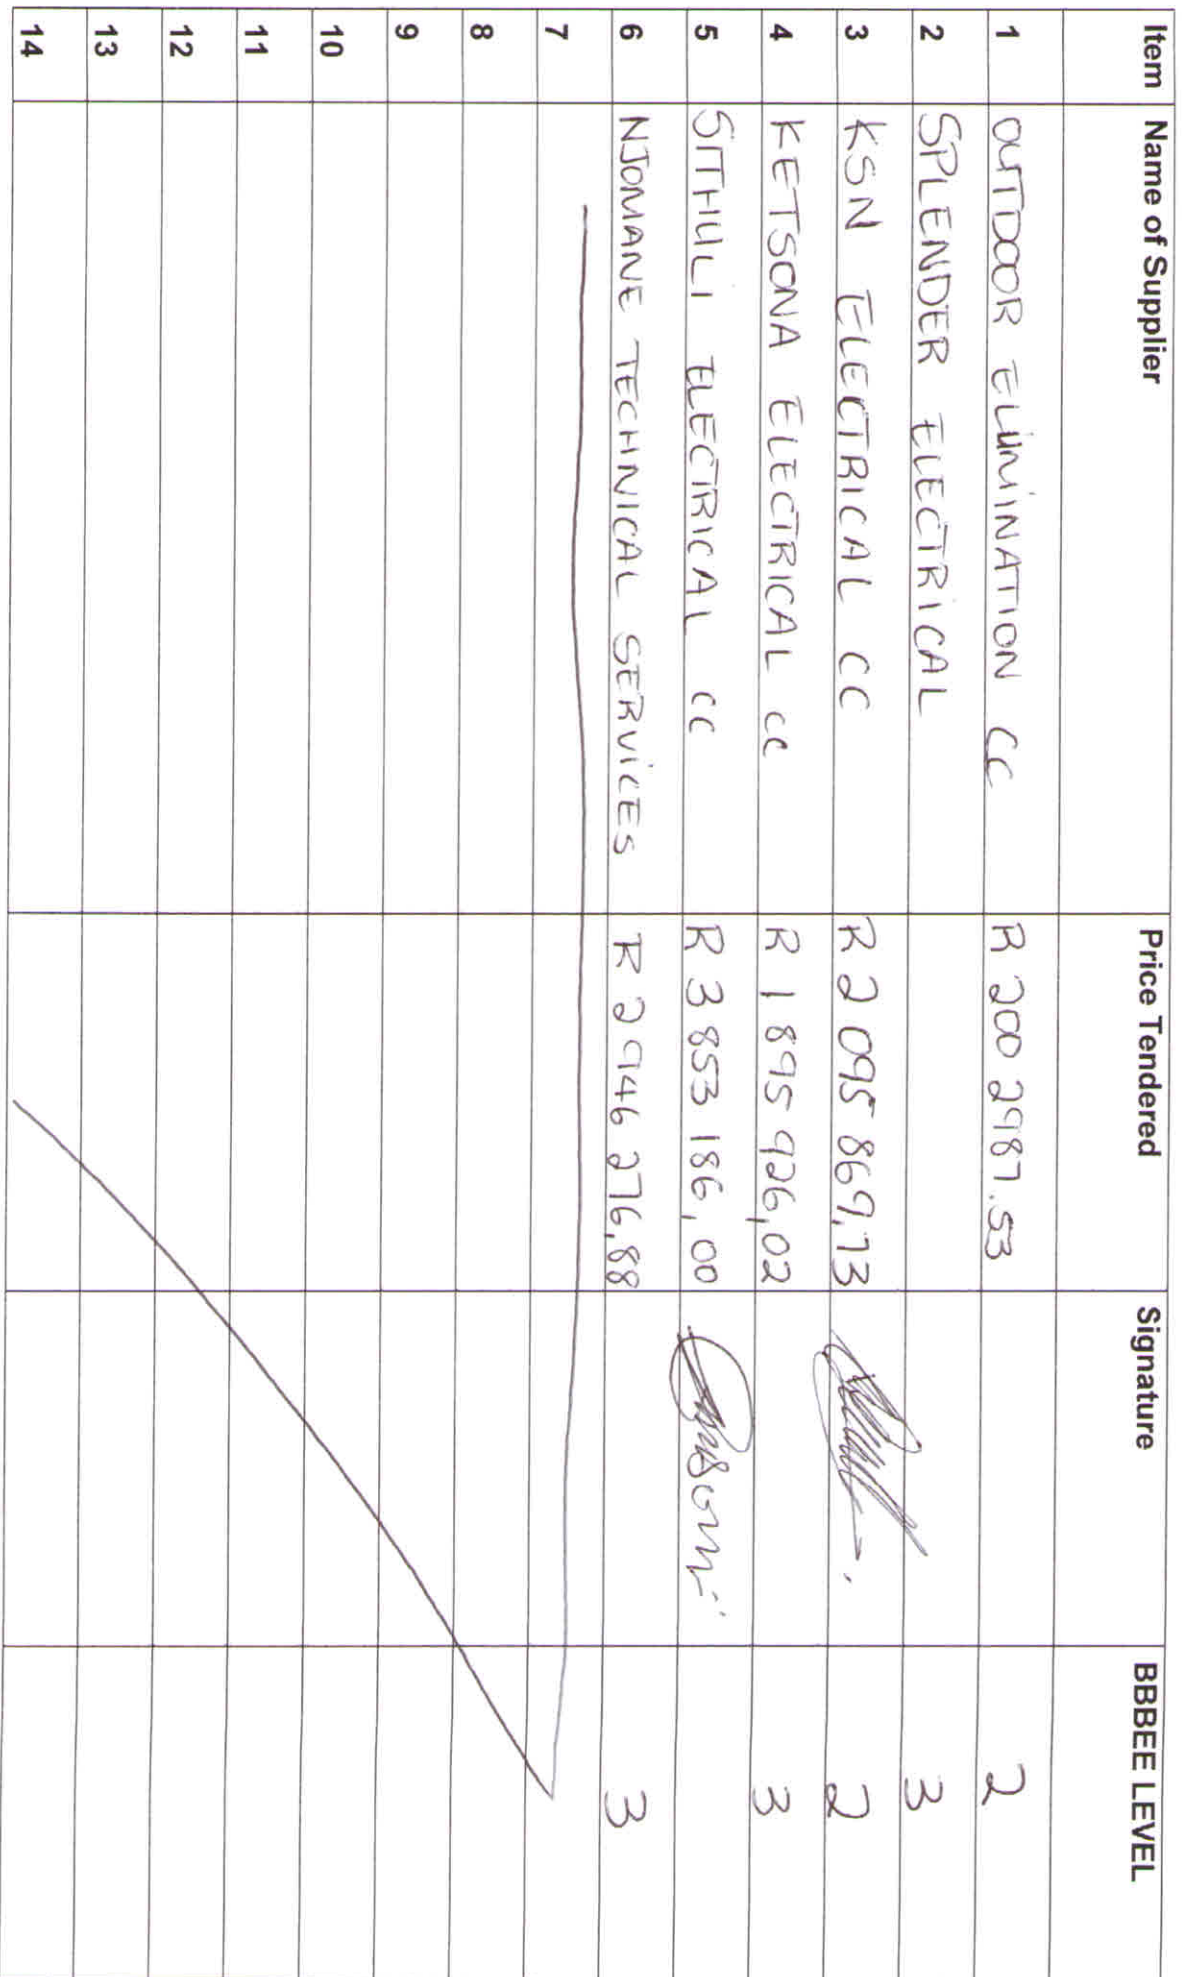 Item Name of Supplier Price Tendered Signature BBBEE LEVEL
1 OUTDOOR ELUMINATION CC R 200 2987.53 2
2 SPLENDER ELECTRICAL 3
3 KSN ELECTRICAL CC R 2 095 869,73 2
4 KETSONA ELECTRICAL CC R 1 895 926,02 3
5 SITHULI ELECTRICAL CC R 3 853 186,00
6 NJOMANE TECHNICAL SERVICES R 2 946 276,88 3
7
8
9
10
11
12
13
14